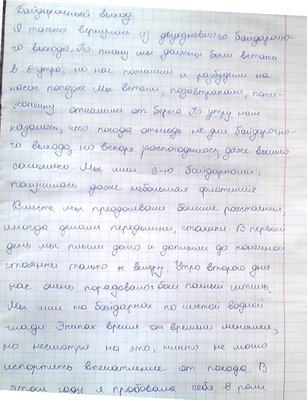 Байдарочный выход.
Я только вернулась из двухдневного байдарочно-
го выхода. По плану мы должны были встать
в 5 утра, но нас пожалели и разбудили на
часок попозже. Мы встали, позавтракали, поти-
хонечку отчалили от берега. По утру нам
казалось, что погода отнюдь не для байдарочно-
го выхода, но вскоре распогодилось, даже вышло
солнышко. Мы шли 3-ю байдарками,
получилась даже небольшая флотилия
Вместе мы преодолевали большие расстояния,
иногда делали передышки, стоянки. В первый
день мы плыли долго и доплыли до конечной
стоянки только к вечеру. Утро второго дня
нас очень порадовало: был полный штиль.
Мы шли на байдарках по чистой водной
глади. Экипаж время от времени менялся,
но несмотря на это, ничто не могло
испортить впечатление от похода. В
этом году я пробовала себя в роли